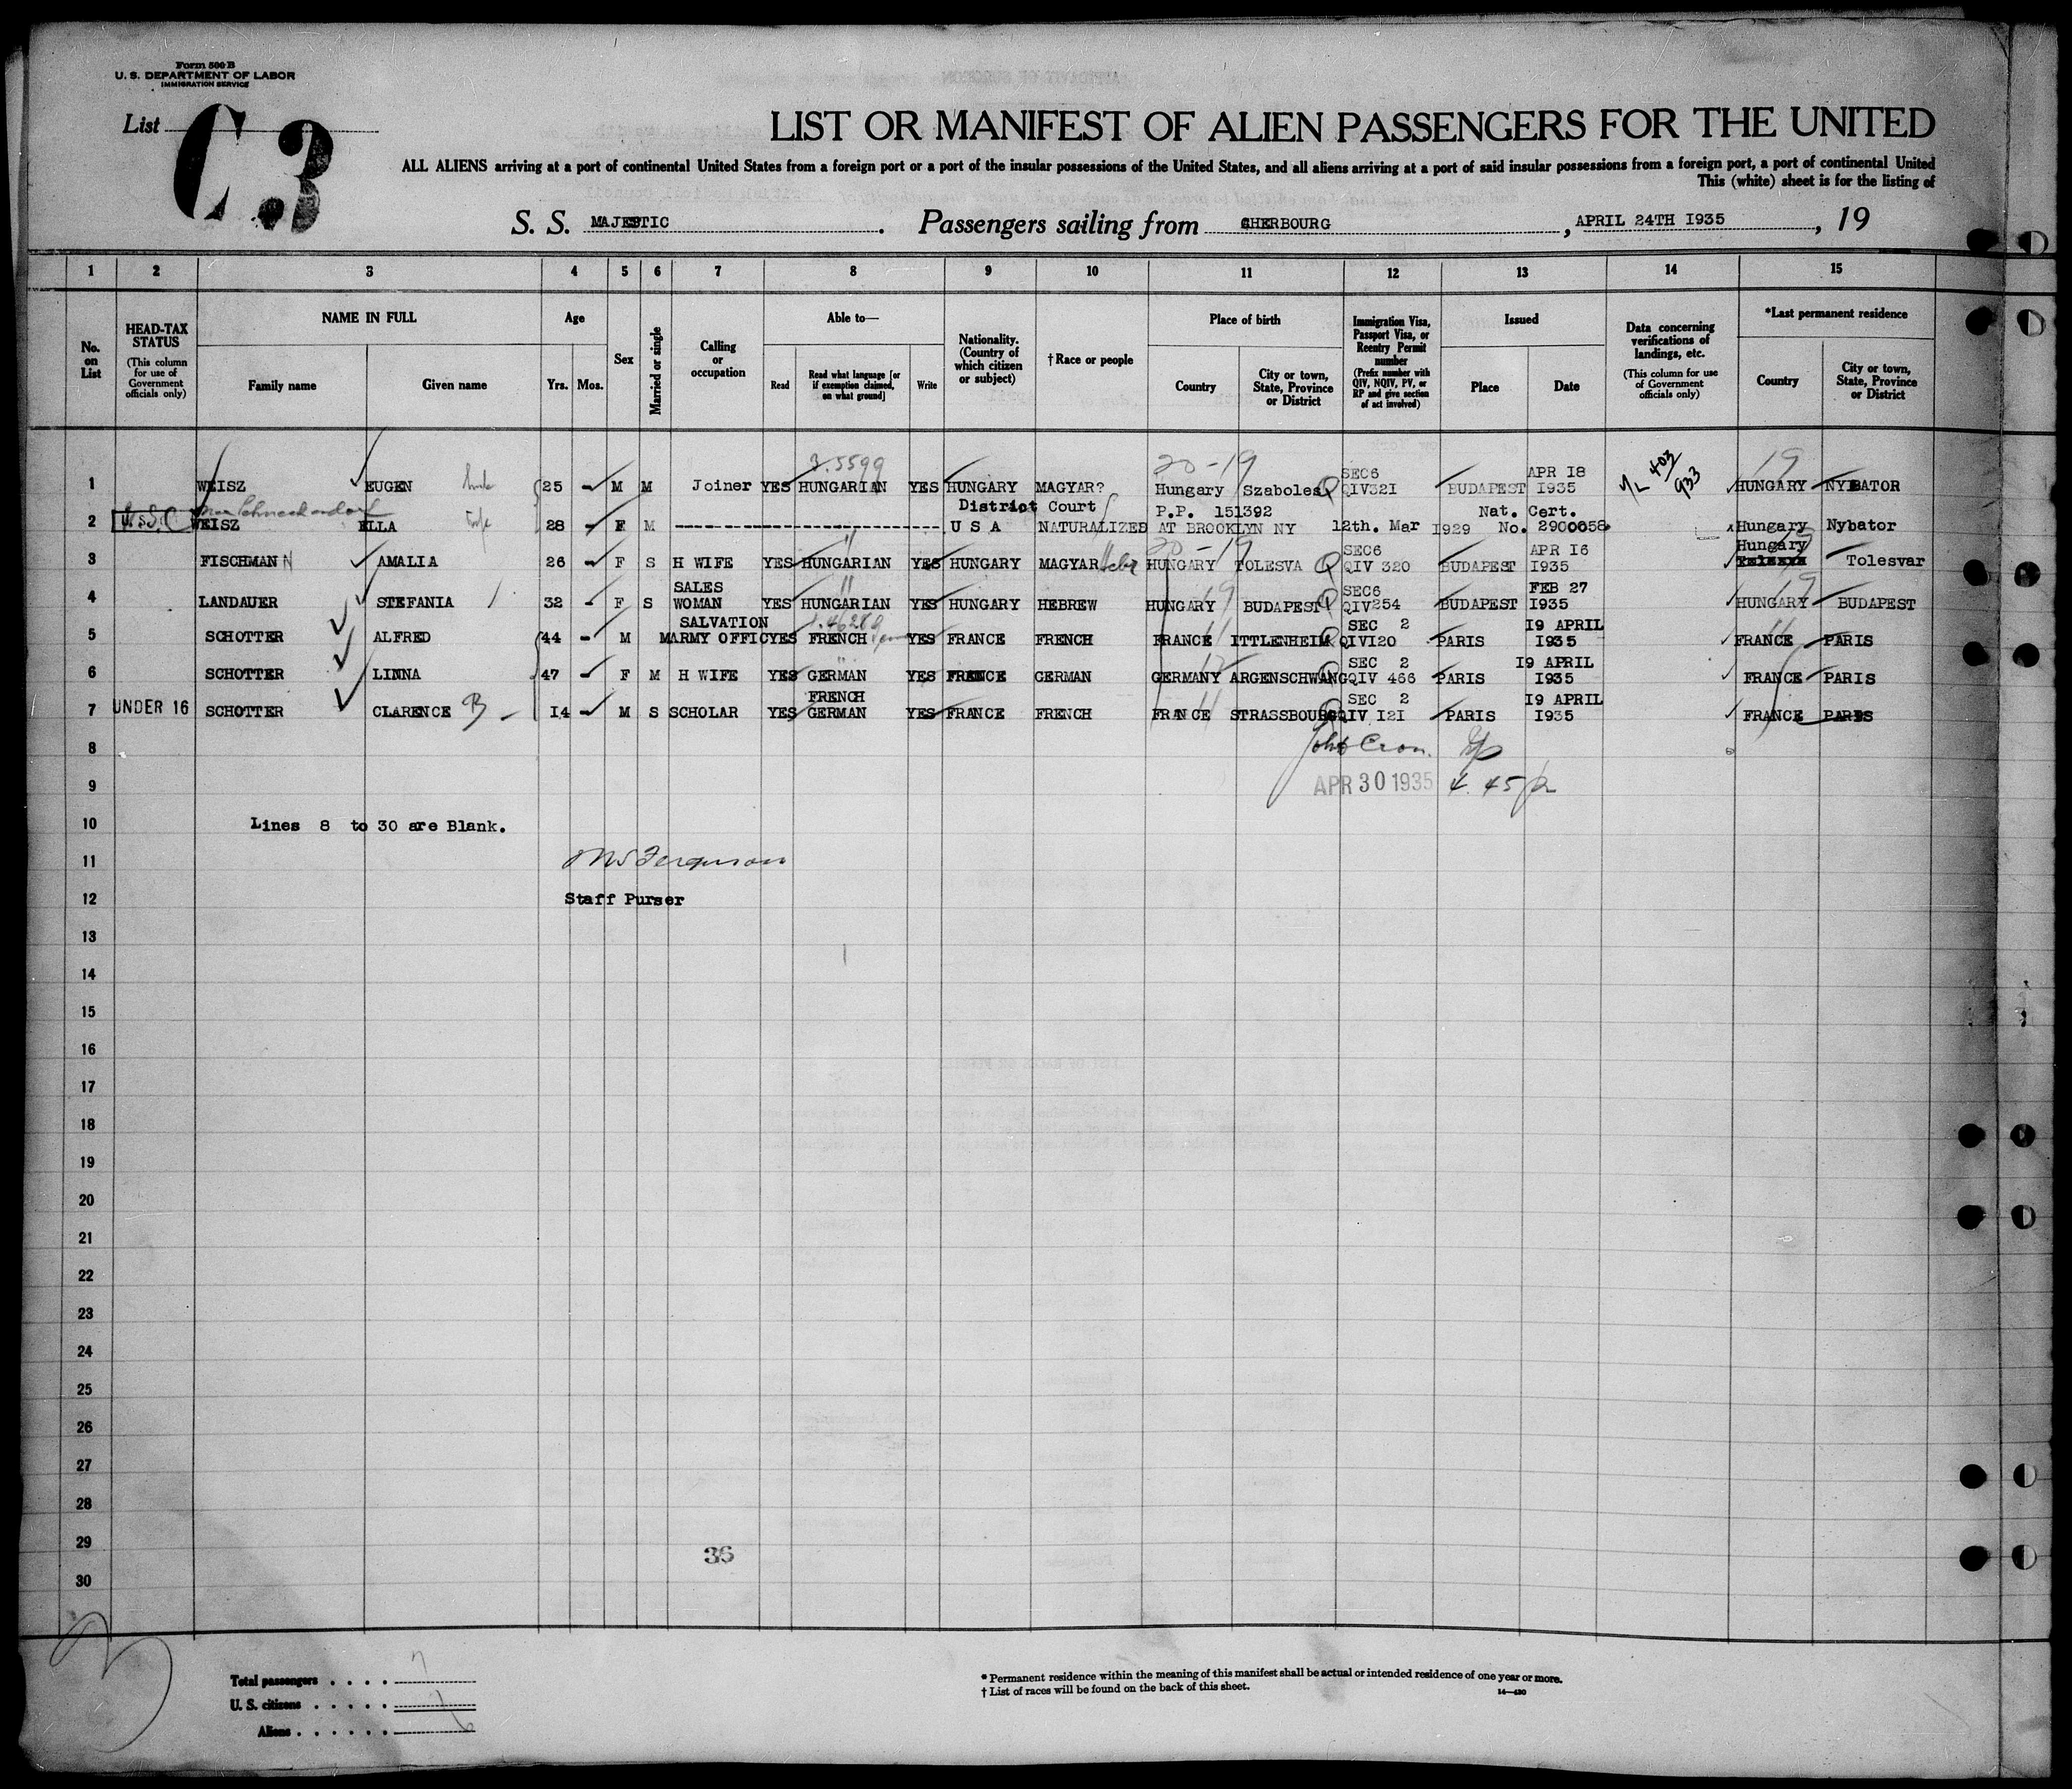 Form 500 B
U. S. DEPARTMENT OF LABOR
IMMIGRATION SERVICE
List C3
LIST OR MANIFEST OF ALIEN PASSENGERS FOR THE UNITED
ALL ALIENS arriving at a port of continental United States from a foreign port or a port of the insular possessions of the United States, and all aliens arriving at a port of said insular possessions from a foreign port, a port of continental United
This (white) sheet is for the listing of
S. S. MAJESTIC. Passengers sailing from CHERBOURG, APRIL 24TH 1935, 19
1 2 3 4 5 6 7 8 9 10 11 12 13 14 15
No. on List
HEAD-TAX STATUS (This column for use of Government officials only)
NAME IN FULL
Family name Given name
Age
Yrs. Mos.
Sex
Married or single
Calling or occupation
Able to—
Read Read what language [or if exemption claimed, on what ground] Write
Nationality. (Country of which citizen or subject)
† Race or people
Place of birth
Country City or town, State, Province or District
Immigration Visa, Passport Visa, or Reentry Permit number (Prefix number with QIV, NQIV, PV, or RP and give section of act involved)
Issued
Place Date
Data concerning verifications of landings, etc. (This column for use of Government officials only)
*Last permanent residence
Country City or town, State, Province or District
3.5599 20-19 SEC6 APR 18 403 933 19
1 WEISZ EUGEN 25 - M M Joiner YES HUNGARIAN YES HUNGARY MAGYAR? Hungary Szaboles QIV321 BUDAPEST 1935 HUNGARY NYBATOR
District Court P.P. 151392 Nat. Cert.
2 WEISZ ELLA wife 28 - F M U S A NATURALIZED AT BROOKLYN NY 12th. Mar 1929 No. 2900058 Hungary Nybator
20-19 SEC6 APR 16 Hungary
3 FISCHMAN N AMALIA 26 - F S H WIFE YES HUNGARIAN YES HUNGARY MAGYAR Hebr HUNGARY TOLESVA QIV 320 BUDAPEST 1935 Tolesvar
SALES SEC6 FEB 27
4 LANDAUER STEFANIA 32 - F S WOMAN YES HUNGARIAN YES HUNGARY HEBREW HUNGARY BUDAPEST QIV254 BUDAPEST 1935 HUNGARY BUDAPEST
SALVATION SEC 2 19 APRIL
5 SCHOTTER ALFRED 44 - M M ARMY OFFIC YES FRENCH YES FRANCE FRENCH FRANCE ITTLENHEIM QIV120 PARIS 1935 FRANCE PARIS
SEC 2 19 APRIL
6 SCHOTTER LINNA 47 - F M H WIFE YES GERMAN YES FRANCE GERMAN GERMANY ARGENSCHWANG QIV 466 PARIS 1935 FRANCE PARIS
FRENCH SEC 2 19 APRIL
7 UNDER 16 SCHOTTER CLARENCE B 14 - M S SCHOLAR YES GERMAN YES FRANCE FRENCH FRANCE STRASSBOURG QIV 121 PARIS 1935 FRANCE PARIS
8
9 APR 30 1935 4 45 p
10 Lines 8 to 30 are Blank.
11 Ferguson
12 Staff Purser
13
14
15
16
17
18
19
20
21
22
23
24
25
26
27
28
29 36
30
Total passengers . . . . 7
U. S. citizens . . . . . 1
Aliens . . . . . . 6
* Permanent residence within the meaning of this manifest shall be actual or intended residence of one year or more.
† List of races will be found on the back of this sheet.
14—430